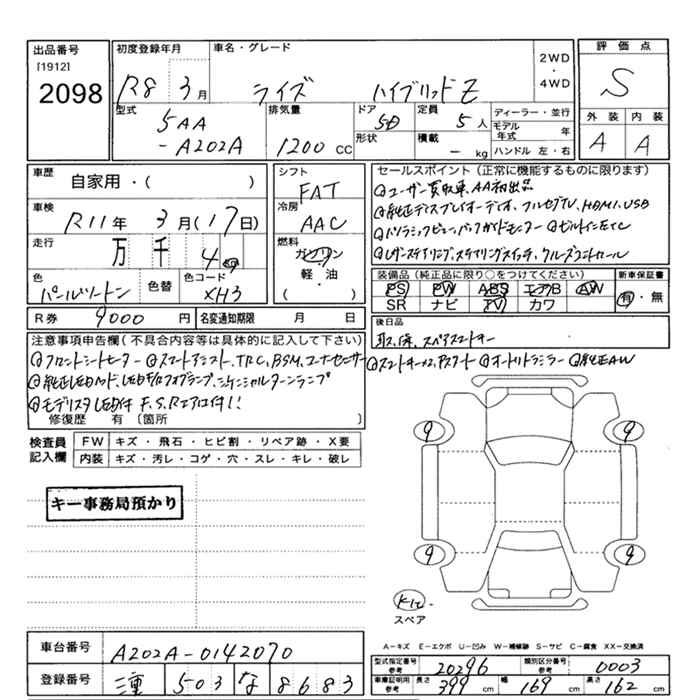 出品番号
[1912]
2098
初度登録年月
R8 3月
車名・グレード
ライズ ハイブリッドZ
2WD
・
4WD
評価点
S
外装 内装
A A
型式
5AA
-A202A
排気量
1200 CC
ドア
5D
形状
定員
5人
積載
- kg
ディーラー・並行
モデル年式 年
ハンドル 左・右
車歴
自家用・( )
車検
R11年 3月(17日)
走行
万 千 4 km
色
パールツートン
色替
色コード
XH3
シフト
FAT
冷房
AAC
燃料
ガソリン
軽・油
( )
セールスポイント(正常に機能するものに限ります)
ユーザー買取車、AA初出品
純正ディスプレイオーディオ、フルセグTV、HDMI、USB
パノラミックビュー、バックガイドモニター ビルトインETC
レザーステアリング、ステアリングスイッチ、クルーズコントロール
装備品(純正品に限り○をつけてください)
新車保証書
PS PW ABS エアB AW
SR ナビ TV カワ
有・無
R券 9000円
名変通知期限 月 日
後日品
取、保、スペアスマートキー
注意事項申告欄(不具合内容等は具体的に記入して下さい)
フロントシートヒーター スマートアシスト、TRC、BSM、コーナーセンサー スマートキー×2、Pスタート オートリトラミラー 純正AW
純正LEDヘッド、LEDF/Rフォグランプ、シーケンシャルターンランプ
モデリスタLED付 F、S、Rエアロ付!!
修復歴 有 〔箇所 〕
検査員
記入欄
FW キズ・飛石・ヒビ割・リペア跡・X要
内装 キズ・汚レ・コゲ・穴・スレ・キレ・破レ
キー事務局預かり
9 9
9 9
キit
スペア
A-キズ E-エクボ U-凹み W-補修跡 S-サビ C-腐食 XX-交換済
車台番号 A202A-0142070
登録番号 三重 503 な 8683
型式指定番号 参考 20296
類別区分番号 参考 0003
車庫証明用 参考 長さ 399 cm 幅 169 cm 高さ 162 cm